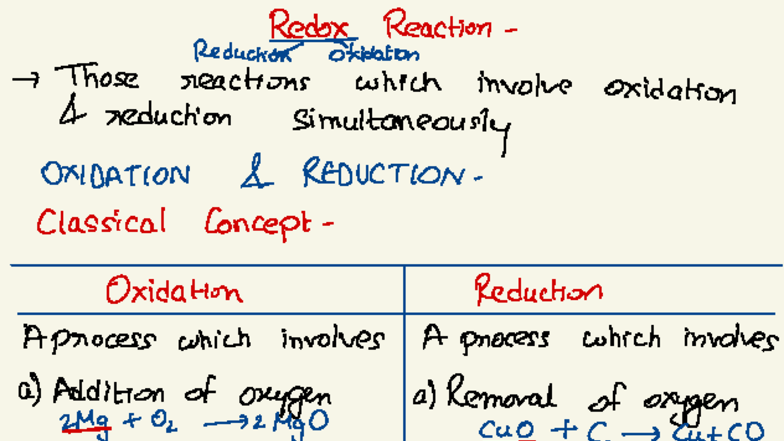 Redox Reaction -
Reduction Oxidation
→ Those reactions which involve oxidation
& reduction simultaneously
OXIDATION & REDUCTION -
Classical Concept -
Oxidation Reduction
A process which involves A process which involves
a) Addition of oxygen a) Removal of oxygen
2Mg + O₂ → 2MgO CuO + C → Cu + CO